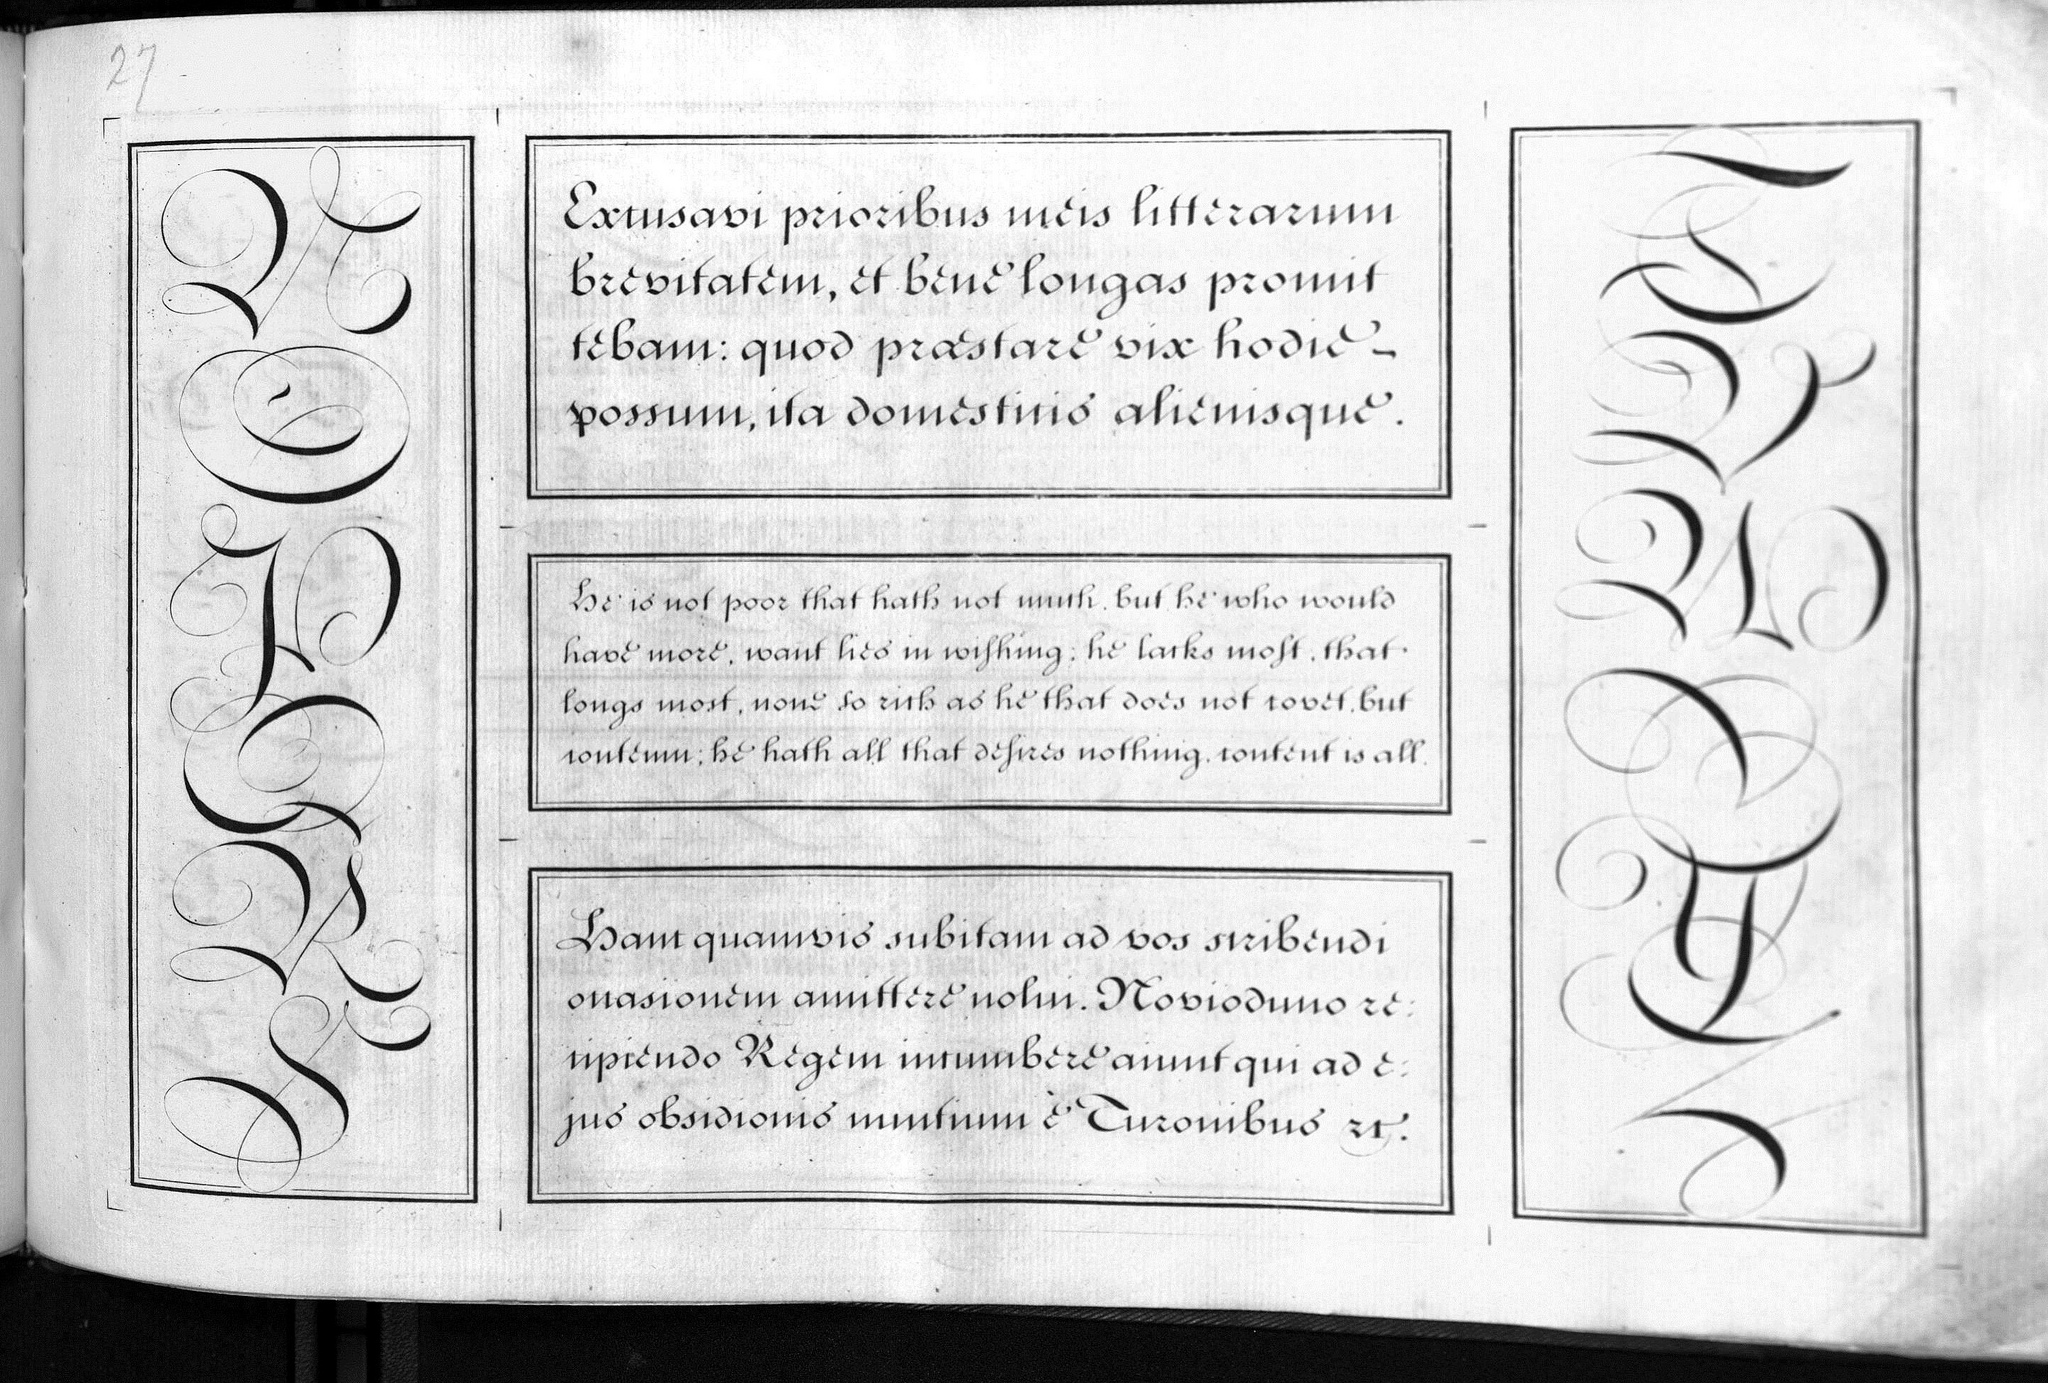 27
N
O
P
Q
R
S
Excusavi prioribus meis litterarum
brevitatem, et bene longas promit
tebam: quod præstare vix hodie-
possum, ita domesticis alienisque.
He is not poor that hath not much, but he who would
have more, want lies in wishing; he lacks most, that
longs most, none so rich as he that does not covet, but
contemn; he hath all that desires nothing, content is all.
Hanc quamvis subitam ad vos scribendi
occasionem amittere nolui. Novioduno re:
cipiendo Regem incumbere aiunt qui ad e:
jus obsidionis nuntium è Turonibus &c.
T
V
W
X
Y
Z